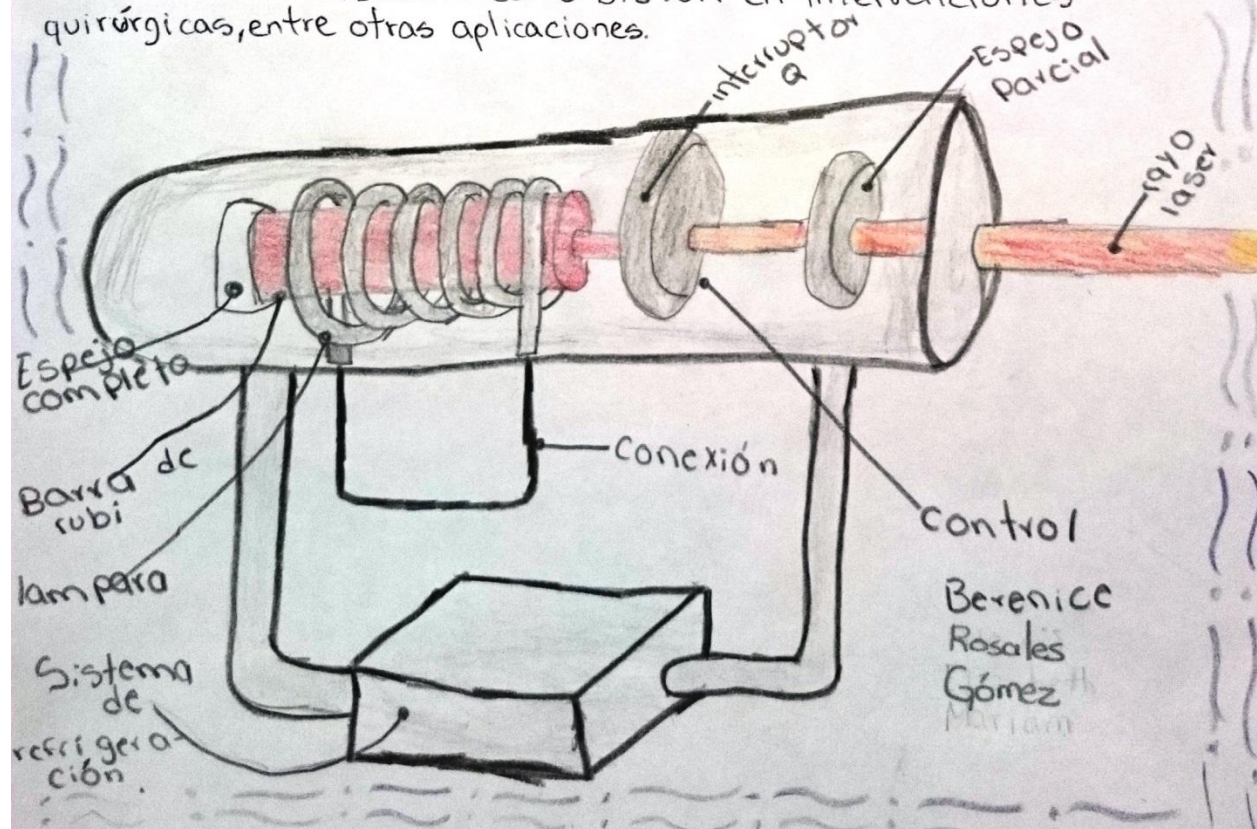 quirúrgicas, entre otras aplicaciones.
interruptor
Q
Espejo
Parcial
rayo
laser
Espejo
completo
Barra de
rubi
lampara
Conexión
Control
Sistema
de
refrigera-
ción
Berenice
Rosales
Gómez
Mariam